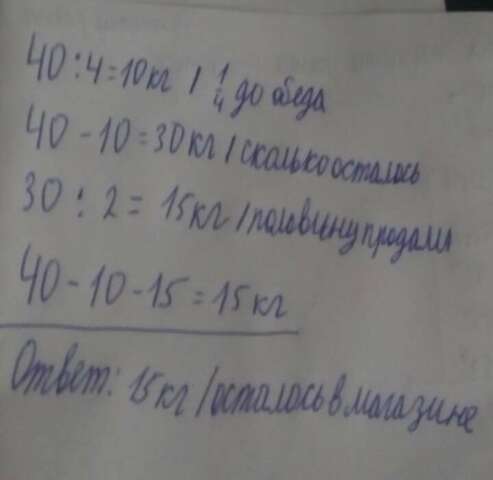 40 : 4 = 10 кг / 1/4 до обеда
40 - 10 = 30 кг / сколько осталось
30 : 2 = 15 кг / половину продали
40 - 10 - 15 = 15 кг
Ответ: 15 кг / осталось в магазине